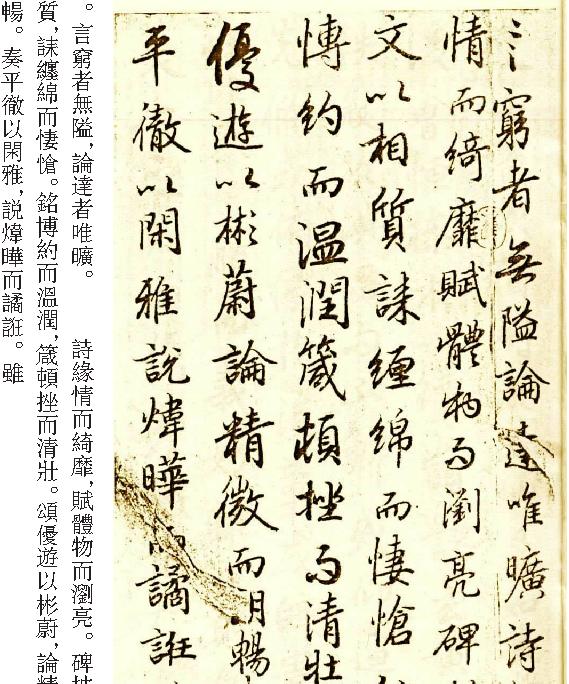 言窮者無隘論達唯曠詩
情而綺靡賦體物而瀏亮碑
文以相質誄纏綿而悽愴
博約而温潤箴頓挫而清壯
優遊以彬蔚論精微而朗暢
平徹以閑雅說煒曄而譎誑
。言窮者無隘,論達者唯曠。　　詩緣情而綺靡,賦體物而瀏亮。碑
質,誄纏綿而悽愴。銘博約而溫潤,箴頓挫而清壯。頌優遊以彬蔚,論精
暢。奏平徹以閑雅,説煒曄而譎誑。雖